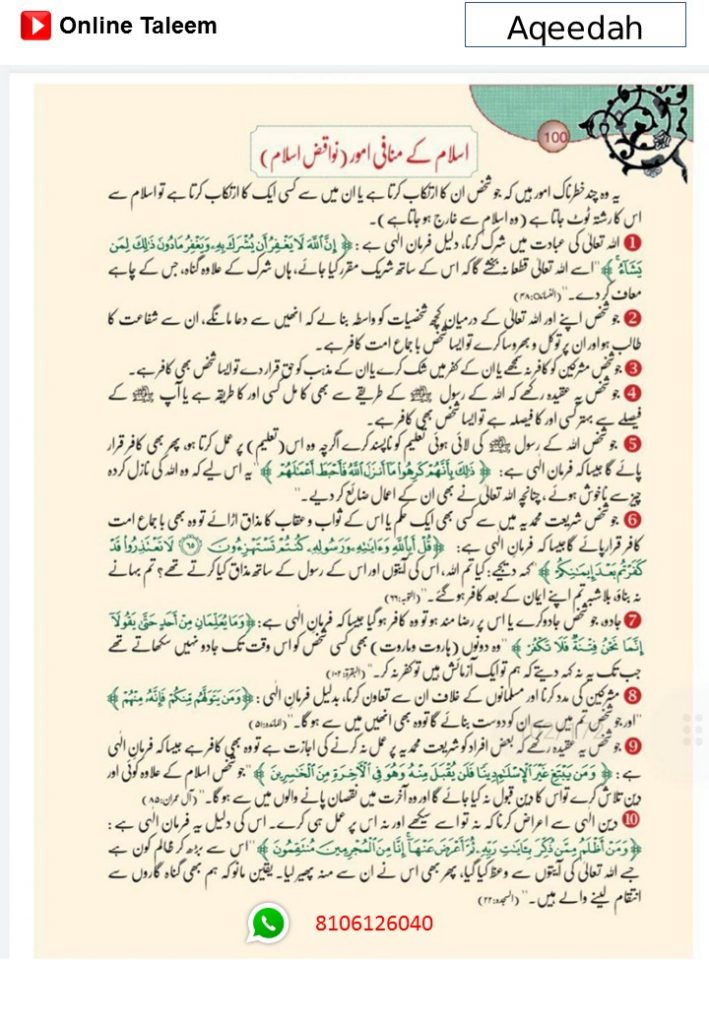 Online Taleem
Aqeedah
100
اسلام کے منافی امور (نواقض اسلام)
یہ وہ چند خطرناک امور ہیں کہ جو شخص ان کا ارتکاب کرتا ہے یا ان میں سے کسی ایک کا ارتکاب کرتا ہے تو اسلام سے
اس کا رشتہ ٹوٹ جاتا ہے (وہ اسلام سے خارج ہو جاتا ہے)۔
1 اللہ تعالیٰ کی عبادت میں شرک کرنا، دلیل فرمان الٰہی ہے: ﴿إِنَّ ٱللَّهَ لَا يَغْفِرُ أَن يُشْرَكَ بِهِۦ وَيَغْفِرُ مَا دُونَ ذَٰلِكَ لِمَن
يَشَآءُ﴾ "اسے اللہ تعالیٰ قطعا نہ بخشے گا کہ اس کے ساتھ شریک مقرر کیا جائے، ہاں شرک کے علاوہ گناہ، جس کے چاہے
معاف کر دے۔" (النساء:۴۸)
2 جو شخص اپنے اور اللہ تعالیٰ کے درمیان کچھ شخصیات کو واسطہ بنالے کہ انھیں سے دعا مانگے، ان سے شفاعت کا
طالب ہو اور ان پر توکل و بھروسا کرے تو ایسا شخص با جماع امت کافر ہے۔
3 جو شخص مشرکین کو کافر نہ سمجھے یا ان کے کفر میں شک کرے یا ان کے مذہب کو حق قرار دے تو ایسا شخص بھی کافر ہے۔
4 جو شخص یہ عقیدہ رکھے کہ اللہ کے رسول ﷺ کے طریقے سے بھی کامل کسی اور کا طریقہ ہے یا آپ ﷺ کے
فیصلے سے بہتر کسی اور کا فیصلہ ہے تو ایسا شخص بھی کافر ہے۔
5 جو شخص اللہ کے رسول ﷺ کی لائی ہوئی تعلیم کو ناپسند کرے اگرچہ وہ اس (تعلیم) پر عمل کرتا ہو، پھر بھی کافر قرار
پائے گا جیسا کہ فرمان الٰہی ہے: ﴿ذَٰلِكَ بِأَنَّهُمْ كَرِهُوا۟ مَآ أَنزَلَ ٱللَّهُ فَأَحْبَطَ أَعْمَٰلَهُمْ﴾ "یہ اس لیے کہ وہ اللہ کی نازل کردہ
چیز سے ناخوش ہوئے، چنانچہ اللہ تعالیٰ نے بھی ان کے اعمال ضائع کر دیے۔"
6 جو شخص شریعت محمدیہ میں سے کسی بھی ایک حکم یا اس کے ثواب و عقاب کا مذاق اڑائے تو وہ بھی با جماع امت
کافر قرار پائے گا جیسا کہ فرمان الٰہی ہے: ﴿قُلْ أَبِٱللَّهِ وَءَايَٰتِهِۦ وَرَسُولِهِۦ كُنتُمْ تَسْتَهْزِءُونَ ۝٦٥ لَا تَعْتَذِرُوا۟ قَدْ
كَفَرْتُم بَعْدَ إِيمَٰنِكُمْ﴾ "کہہ دیجیے: کیا تم اللہ، اس کی آیتوں اور اس کے رسول کے ساتھ مذاق کیا کرتے تھے؟ تم بہانے
نہ بناؤ، بلاشبہ تم اپنے ایمان کے بعد کافر ہو گئے۔" (التوبہ:۶۶)
7 جادو، جو شخص جادو کرے یا اس پر رضا مند ہو تو وہ کافر ہو گیا جیسا کہ فرمان الٰہی ہے: ﴿وَمَا يُعَلِّمَانِ مِنْ أَحَدٍ حَتَّىٰ يَقُولَآ
إِنَّمَا نَحْنُ فِتْنَةٌ فَلَا تَكْفُرْ﴾ "وہ دونوں (ہاروت و ماروت) بھی کسی شخص کو اس وقت تک جادو نہیں سکھاتے تھے
جب تک یہ نہ کہہ دیتے کہ ہم تو ایک آزمائش ہیں تو کفر نہ کر۔" (البقرۃ:۱۰۲)
8 مشرکین کی مدد کرنا اور مسلمانوں کے خلاف ان سے تعاون کرنا، بدلیل فرمان الٰہی: ﴿وَمَن يَتَوَلَّهُم مِّنكُمْ فَإِنَّهُۥ مِنْهُمْ﴾
"اور جو شخص تم میں سے ان کو دوست بنائے گا تو وہ بھی انھیں میں سے ہو گا۔" (المائدہ:۵۱)
9 جو شخص یہ عقیدہ رکھے کہ بعض افراد کو شریعت محمدیہ پر عمل نہ کرنے کی اجازت ہے تو وہ بھی کافر ہے جیسا کہ فرمان الٰہی
ہے: ﴿وَمَن يَبْتَغِ غَيْرَ ٱلْإِسْلَٰمِ دِينًا فَلَن يُقْبَلَ مِنْهُ وَهُوَ فِى ٱلْءَاخِرَةِ مِنَ ٱلْخَٰسِرِينَ﴾ "جو شخص اسلام کے علاوہ کوئی اور
دین تلاش کرے تو اس کا دین قبول نہ کیا جائے گا اور وہ آخرت میں نقصان پانے والوں میں سے ہو گا۔" (آل عمران:۸۵)
10 دین الٰہی سے اعراض کرنا کہ نہ تو اسے سیکھے اور نہ اس پر عمل ہی کرے۔ اس کی دلیل یہ فرمان الٰہی ہے:
﴿وَمَنْ أَظْلَمُ مِمَّن ذُكِّرَ بِـَٔايَٰتِ رَبِّهِۦ ثُمَّ أَعْرَضَ عَنْهَآ إِنَّا مِنَ ٱلْمُجْرِمِينَ مُنتَقِمُونَ﴾ "اس سے بڑھ کر ظالم کون ہے
جسے اللہ تعالیٰ کی آیتوں سے وعظ کیا گیا، پھر بھی اس نے ان سے منہ پھیر لیا۔ یقین مانو کہ ہم بھی گناہ گاروں سے
انتقام لینے والے ہیں۔" (السجدہ:۲۲)
8106126040